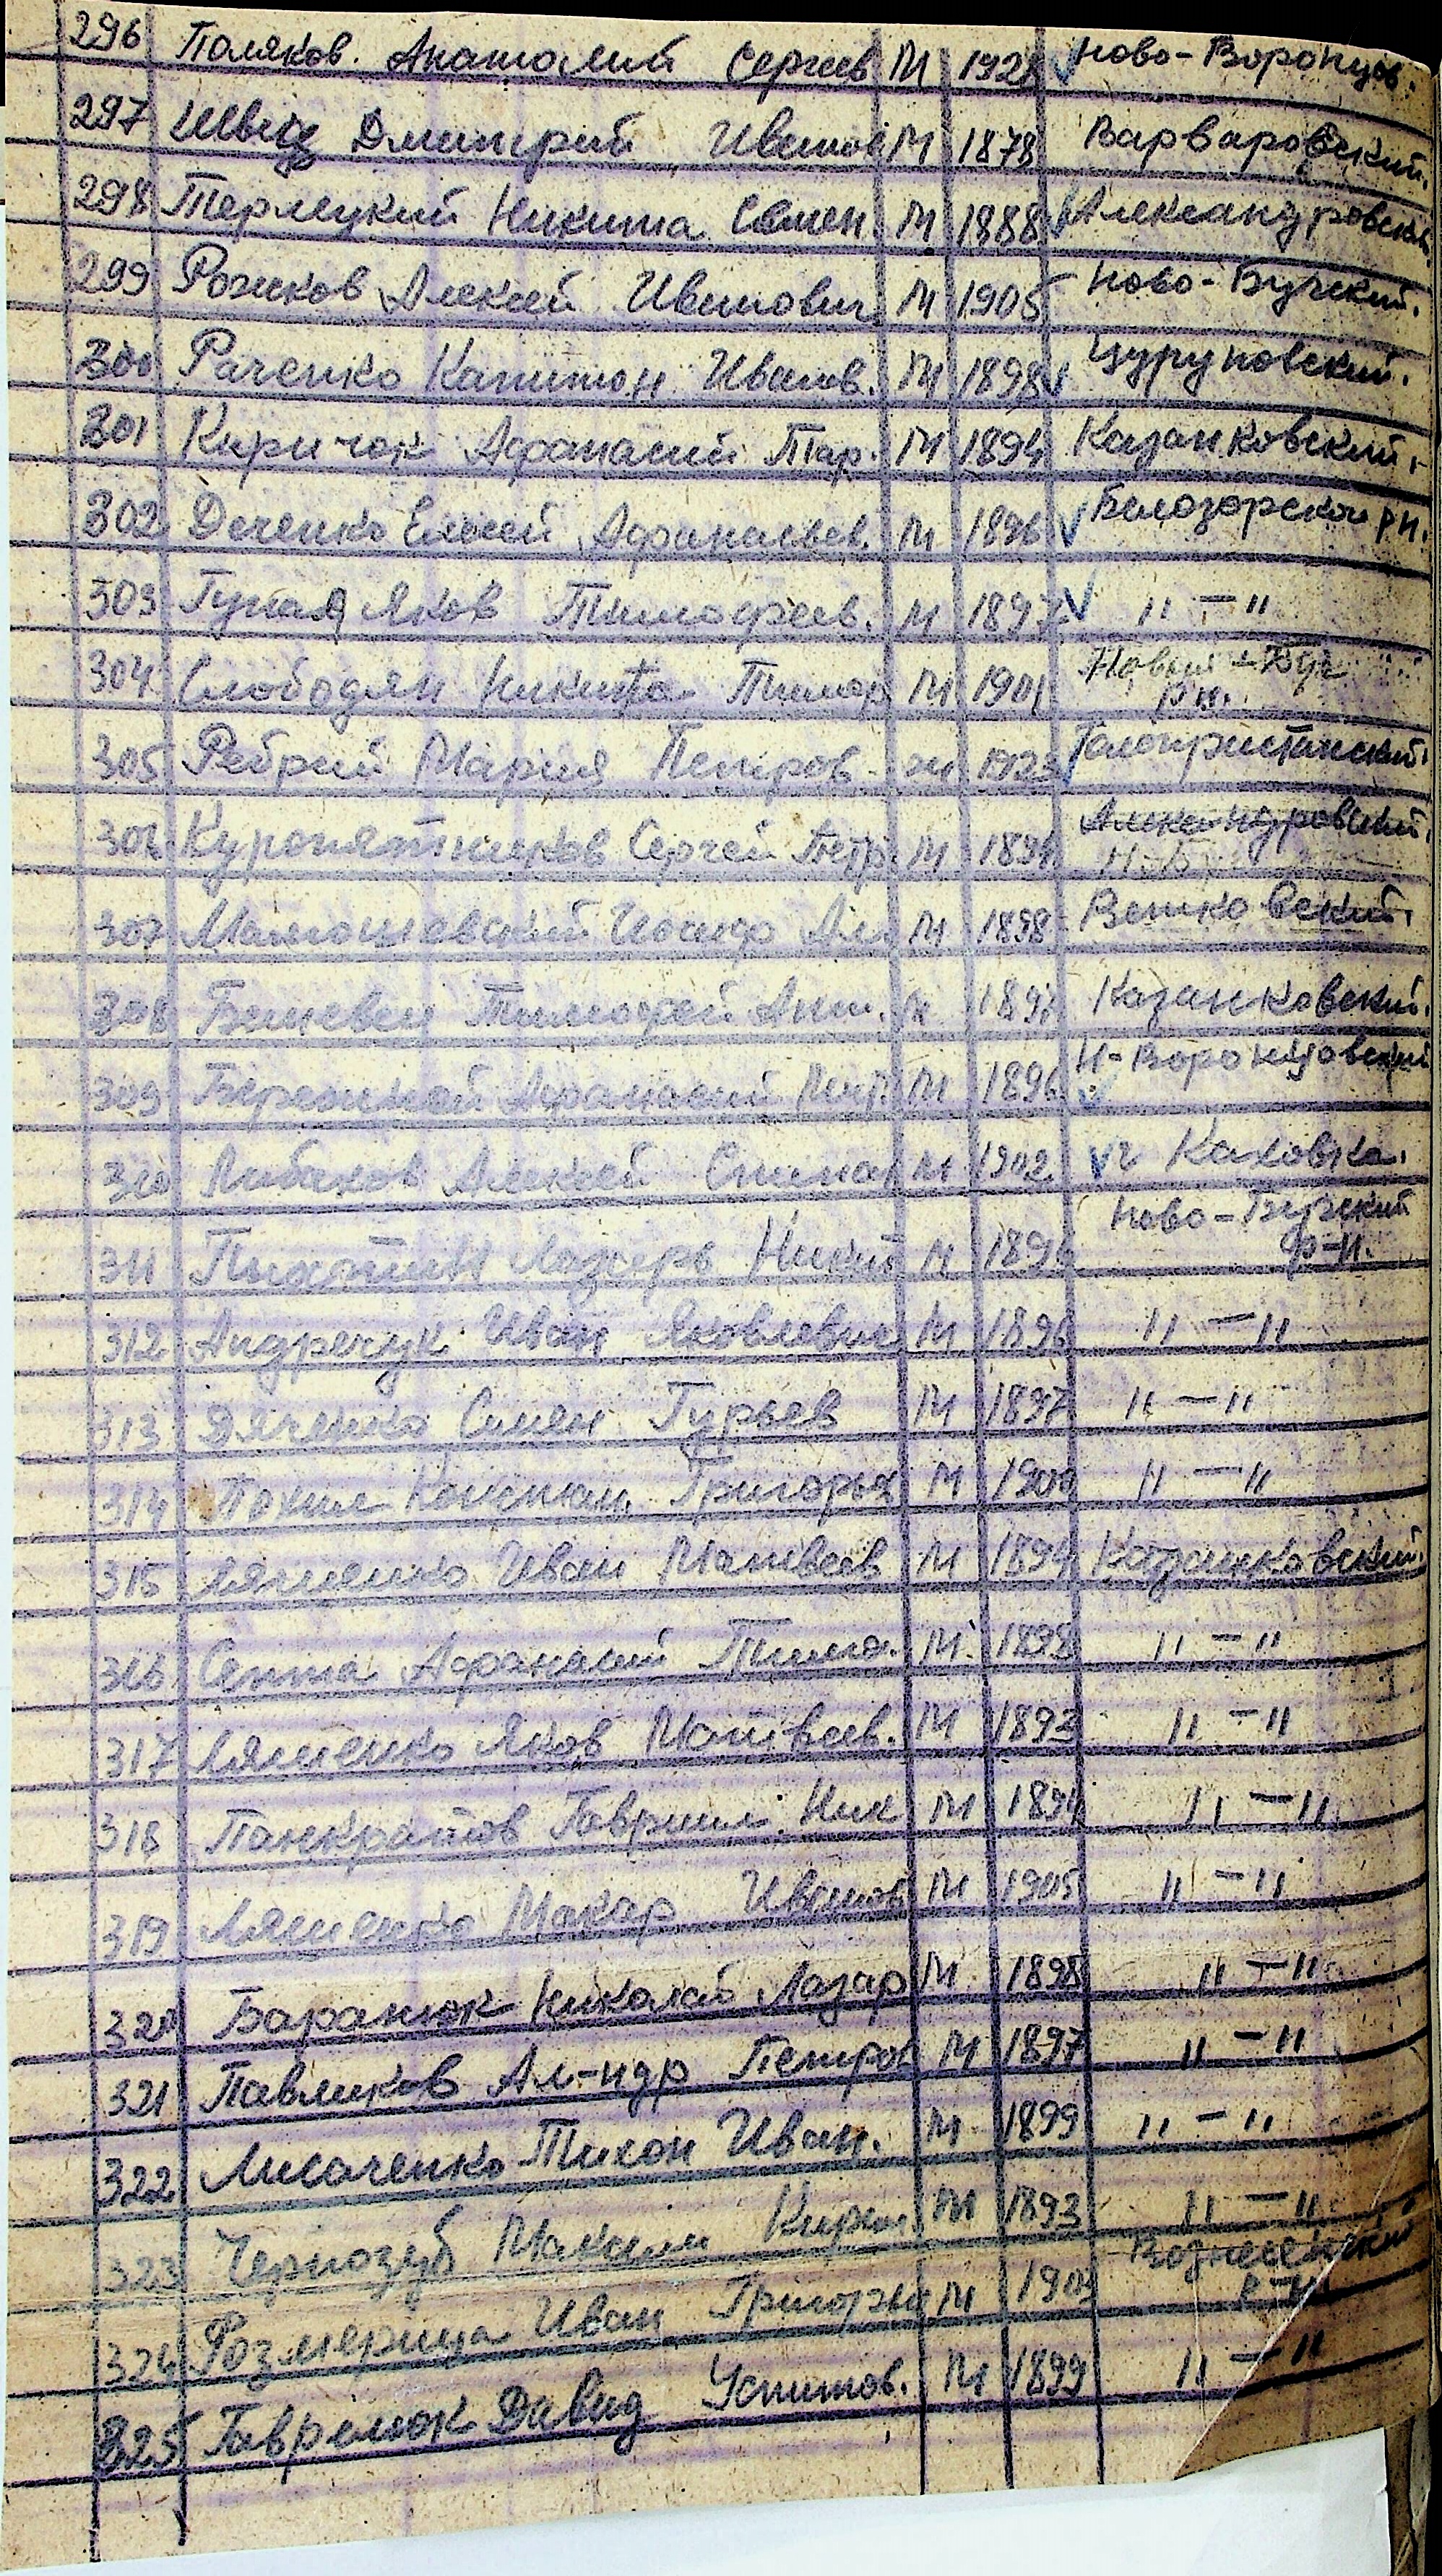 296 Поляков. Анатолий Сергеев М 1928 Ново-Воронцов.
297 Швец Дмитрий Иванов М 1878 Варваровский.
298 Терлецкий Никита Семен. М 1888 Александровский
299 Рожков Алексей Иванович М 1905 Ново-Бугский.
300 Раченко Капитон Иванов. М 1898 Цуруповский.
301 Киричок Афанасий Тар. М 1894 Казанковский.
302 Деченко Елисей Афанасьев. М 1896 Белозорской рн.
303 Яков Тимофеев. М 1897 "—"
304 Слободян Никита Тимоф М 1901 Новый-Буг
рн.
305 Ребрий Мария Петров. ж 1923 Голопристанский.
306 Куропятников Сергей Петр. М 1894 Александровский.
307 Иосиф Ал. М 1898
308 Тимофей Ант. М Казанковский.
309 Афанасий М 1896 Н-Воронцовский
310 Алексей М 1902 г Каховка.
311 Лазарь Никит М 1896 Ново-Бугский
р-н.
312 Андрейчук Иван Яковлевич М 1896 "—"
313 Дяченко Семен Гурьев М 1897 "—"
314 Похил Констан. Григорьев М 1900 "—"
315 Ляшенко Иван Матвеев М 1894 Казанковский.
316 Септа Афанасий Тимо. М. 1898 "—"
317 Ляшенко Яков Матвеев. М 1893 "—"
318 Панкратов Гавриил. Ник М 1894 "—"
319 Ляшенко Макар Иванов М 1905 "—"
320 Баранюк Николай Лазар М 1898 "—"
321 Павликов Ал-ндр Петров М 1897 "—"
322 Лисаченко Тихон Иван. М 1899 "—"
323 Чернозуб Максим Кирил М 1893 "—"
324 Розмерица Иван Григорье М Вознесенский
р-н
325 Гаврилюк Давид Устимов. М 1899 "—"